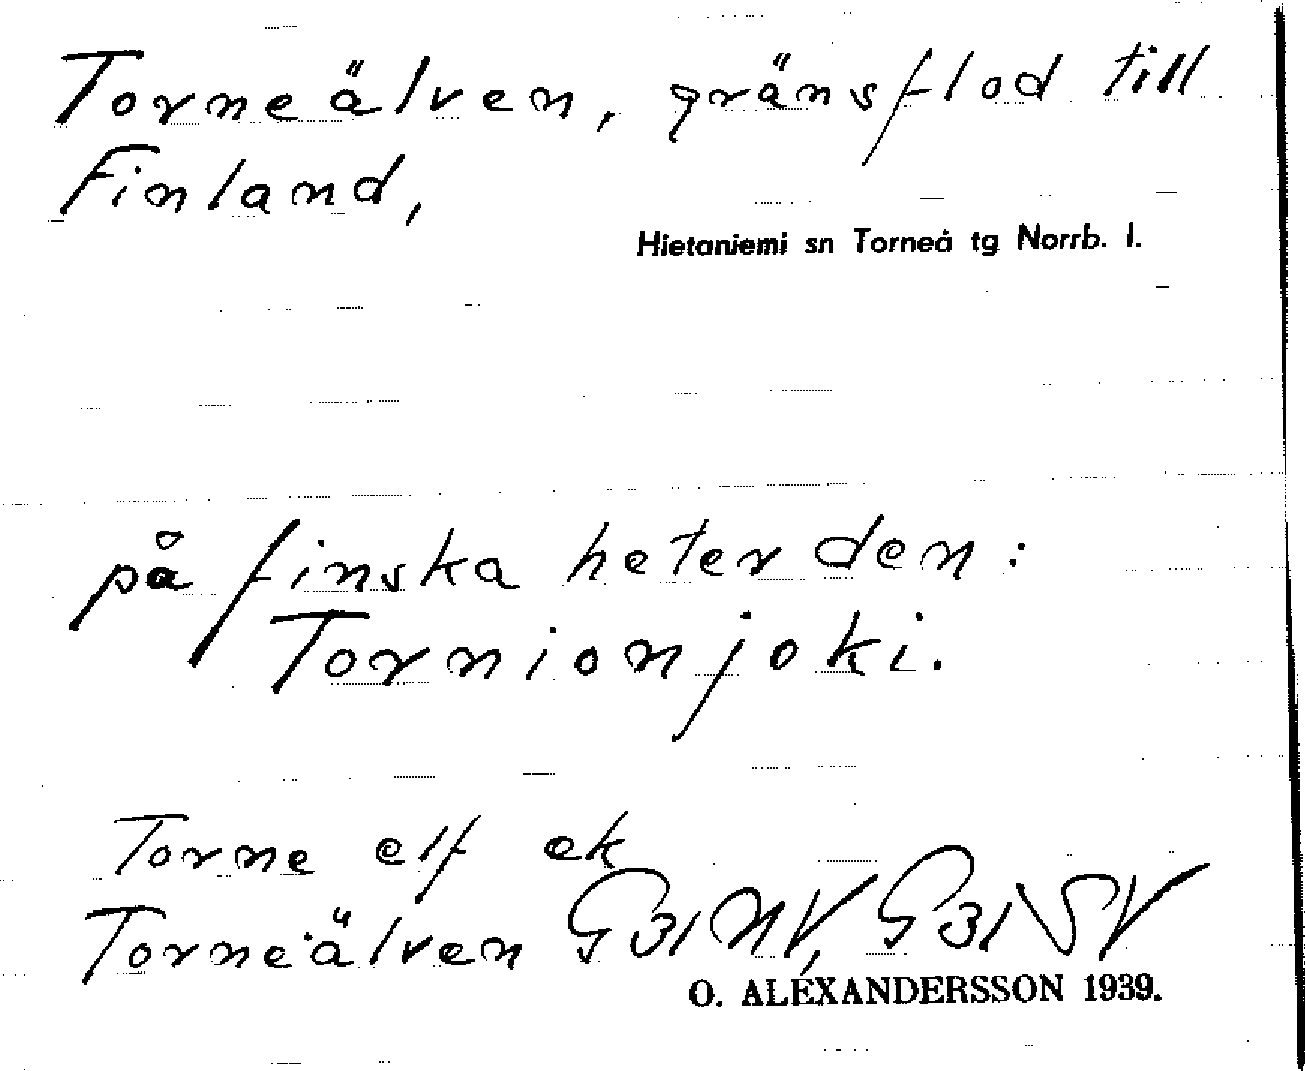 Torneälven, gränsflod till
Finland,
Hietaniemi sn Torneå tg Norrb. l.
på finska heter den:
Tornionjoki.
Torne elf ek
Torneälven G31NV, G31SV
O. ALEXANDERSSON 1939.